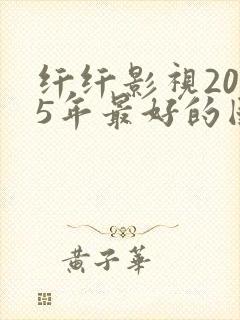 纤纤影視20
5年最好的
黄子華